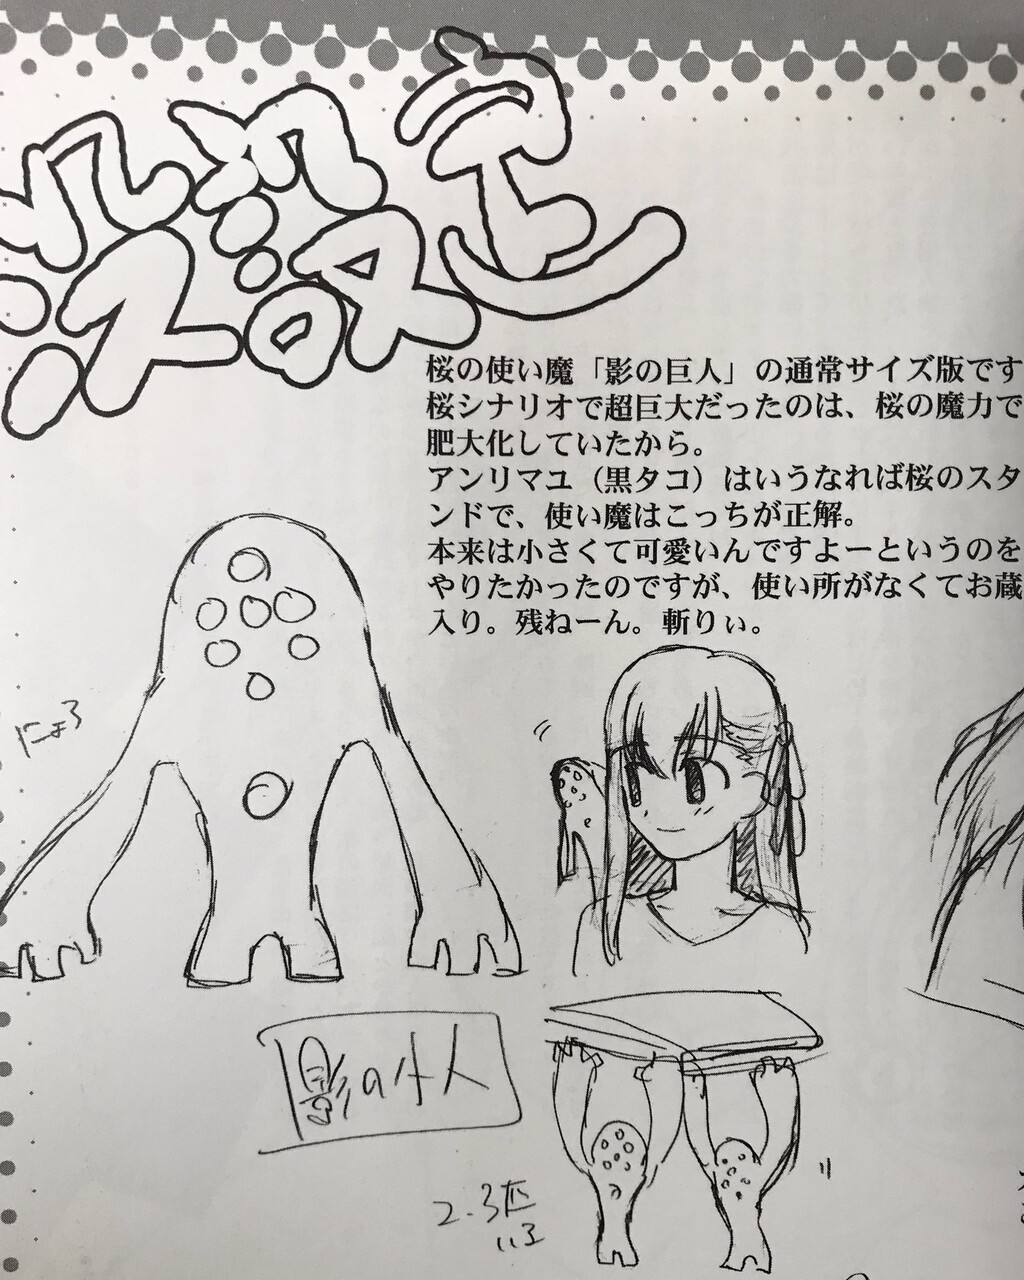 設定
桜の使い魔「影の巨人」の通常サイズ版です
桜シナリオで超巨大だったのは、桜の魔力で
肥大化していたから。
アンリマユ（黒タコ）はいうなれば桜のスタ
ンドで、使い魔はこっちが正解。
本来は小さくて可愛いんですよーというのを
やりたかったのですが、使い所がなくてお蔵
入り。残ねーん。斬りぃ。
にょろ
影の小人
2.3匹
いる